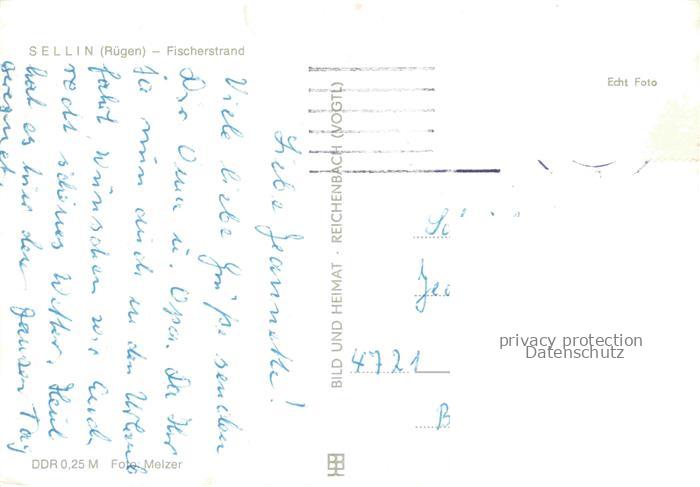 SELLIN (Rügen) – Fischerstrand
Echt Foto
Liebe Jeannette!
Viele liebe Grüße senden
Dir Oma u. Opa. Da Ihr
ja nun auch in den Urlaub
fahrt, wünschen wir Euch
recht schönes Wetter. Heut
hat es hier den ganzen Tag
geregnet.
BILD UND HEIMAT · REICHENBACH (VOGTL)
4721
B
privacy protection
Datenschutz
DDR 0,25 M Foto: Melzer